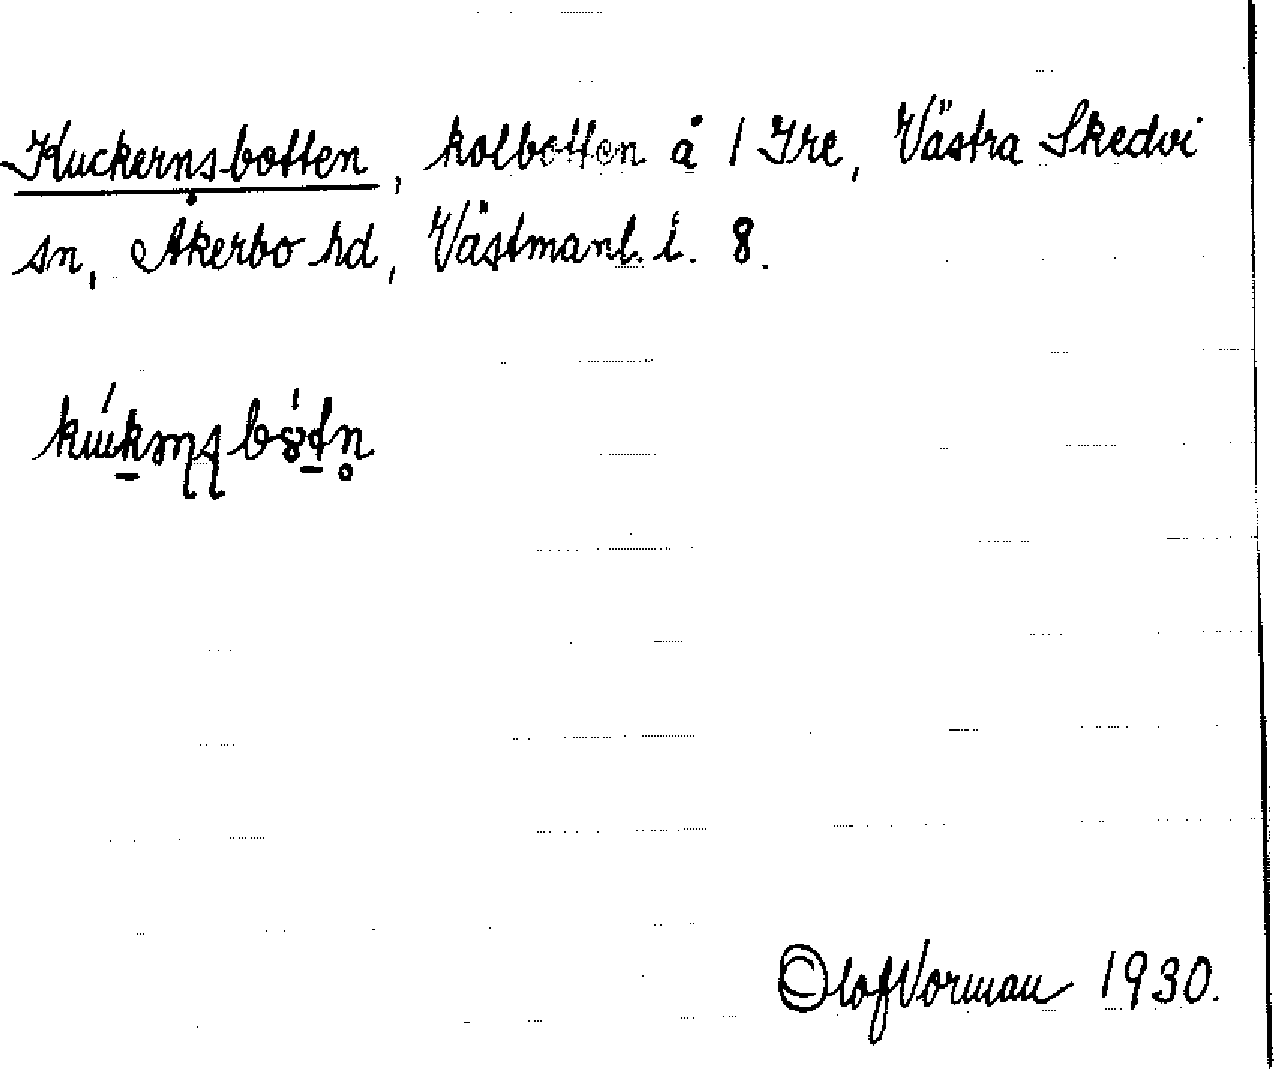 Kuckernsbotten, kolbotten å 1 Ire, Västra Skedvi
sn, Åkerbo hd, Västmanl. l. 8.
Olof Vorman 1930.